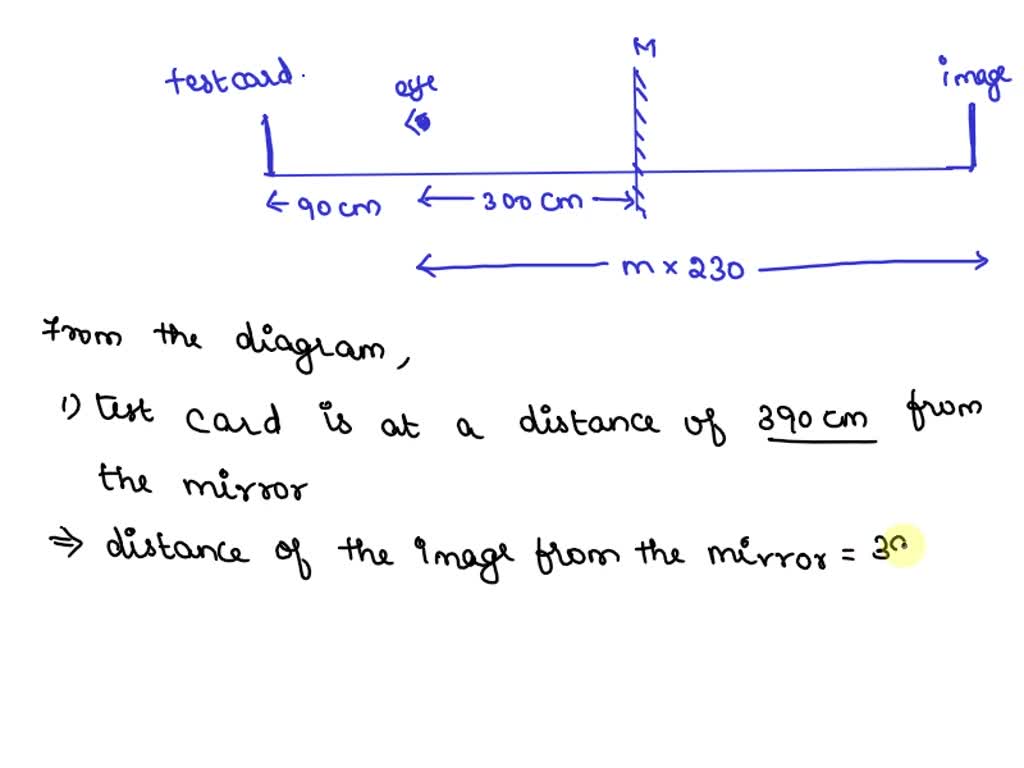 M
test card.
eye
image
90 cm
300 cm
m × 230
From the diagram,
1) test card is at a distance of 390 cm from
the mirror
⇒ distance of the image from the mirror = 39